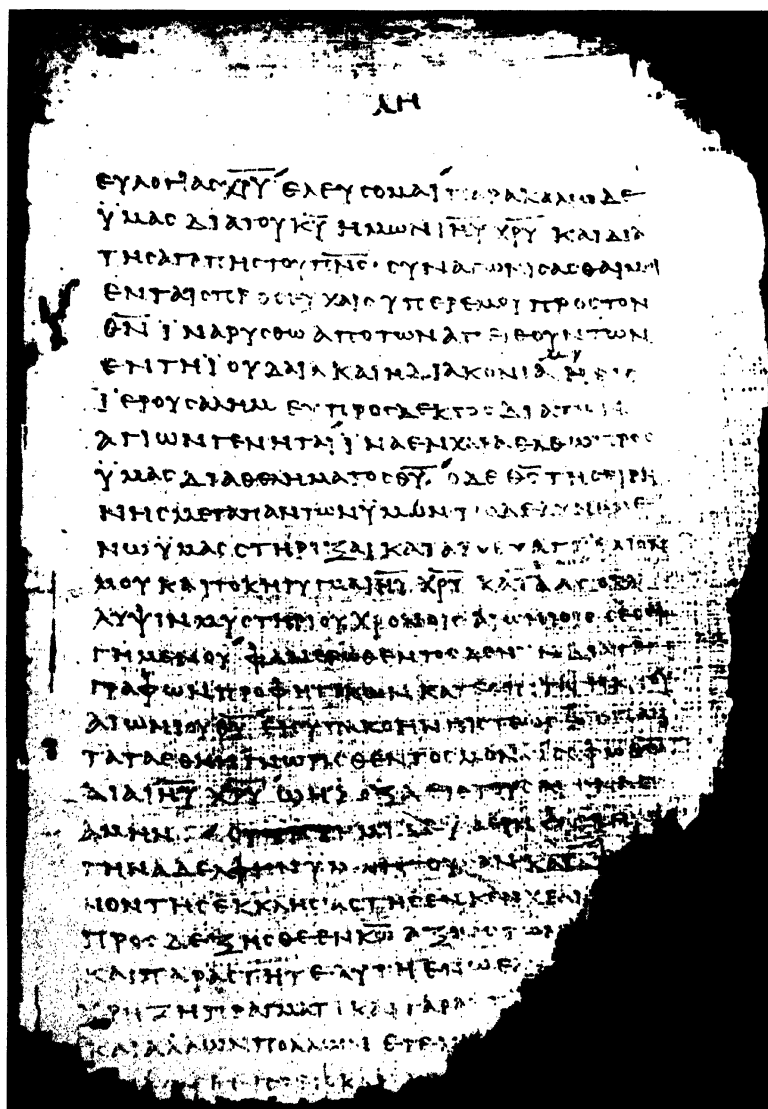 ΛΗ
ΕΥΛΟΓΙΑΣ ΧΡΥ ΕΛΕΥΣΟΜΑΙ ΠΑΡΑΚΑΛΩ ΔΕ
ΥΜΑΣ ΔΙΑ ΤΟΥ ΚΥ ΗΜΩΝ ΙΗΥ ΧΡΥ ΚΑΙ ΔΙΑ
ΤΗΣ ΑΓΑΠΗΣ ΤΟΥ ΠΝΣ ΣΥΝΑΓΩΝΙΣΑΣΘΑΙ ΜΟΙ
ΕΝ ΤΑΙΣ ΠΡΟΣΕΥΧΑΙΣ ΥΠΕΡ ΕΜΟΥ ΠΡΟΣ ΤΟΝ
ΘΝ ΙΝΑ ΡΥΣΘΩ ΑΠΟ ΤΩΝ ΑΠΕΙΘΟΥΝΤΩΝ
ΕΝ ΤΗ ΙΟΥΔΑΙΑ ΚΑΙ Η ΔΙΑΚΟΝΙΑ ΜΟΥ Η ΕΙΣ
ΙΕΡΟΥΣΑΛΗΜ ΕΥΠΡΟΣΔΕΚΤΟΣ ΔΙΑ ΤΩΝ
ΑΓΙΩΝ ΓΕΝΗΤΑΙ ΙΝΑ ΕΝ ΧΑΡΑ ΕΛΘΩ ΠΡΟΣ
ΥΜΑΣ ΔΙΑ ΘΕΛΗΜΑΤΟΣ ΘΥ Ο ΔΕ ΘΣ ΤΗΣ ΕΙΡΗ
ΝΗΣ ΜΕΤΑ ΠΑΝΤΩΝ ΥΜΩΝ ΤΩ ΔΕ ΔΥΝΑΜΕ
ΝΩ ΥΜΑΣ ΣΤΗΡΙΞΑΙ ΚΑΤΑ ΤΟ ΕΥΑΓΓΕΛΙΟΝ
ΜΟΥ ΚΑΙ ΤΟ ΚΗΡΥΓΜΑ ΙΗΥ ΧΡΥ ΚΑΤΑ ΑΠΟΚΑ
ΛΥΨΙΝ ΜΥΣΤΗΡΙΟΥ ΧΡΟΝΟΙΣ ΑΙΩΝΙΟΙΣ ΣΕΣΕΙ
ΓΗΜΕΝΟΥ ΦΑΝΕΡΩΘΕΝΤΟΣ ΔΕ ΝΥΝ ΔΙΑ ΤΕ
ΓΡΑΦΩΝ ΠΡΟΦΗΤΙΚΩΝ ΚΑΤ ΕΠΙΤΑΓΗΝ ΤΟΥ
ΑΙΩΝΙΟΥ ΘΥ ΕΙΣ ΥΠΑΚΟΗΝ ΠΙΣΤΕΩΣ ΕΙΣ ΠΑΝ
ΤΑ ΤΑ ΕΘΝΗ ΓΝΩΡΙΣΘΕΝΤΟΣ ΜΟΝΩ ΣΟΦΩ ΘΩ
ΔΙΑ ΙΗΥ ΧΡΥ Ω Η ΔΟΞΑ ΕΙΣ ΤΟΥΣ ΑΙΩΝΑΣ
ΑΜΗΝ
ΤΗΝ ΑΔΕΛΦΗΝ ΥΜΩΝ ΟΥΣΑΝ ΚΑΙ
ΝΟΝ ΤΗΣ ΕΚΚΛΗΣΙΑΣ ΤΗΣ ΕΝ ΚΕΝΧΕΑΙ
ΠΡΟΣΔΕΞΗΣΘΕ ΕΝ ΚΩ ΑΞΙΩΣ ΤΩΝ
ΚΑΙ ΠΑΡΑΣΤΗΤΕ ΑΥΤΗ ΕΝ Ω Ε
ΧΡΗΖΗ ΠΡΑΓΜΑΤΙ ΚΑΙ ΓΑΡ Α
ΚΑΙ ΑΛΛΩΝ ΠΟΛΛΩΝ ΕΓΕ